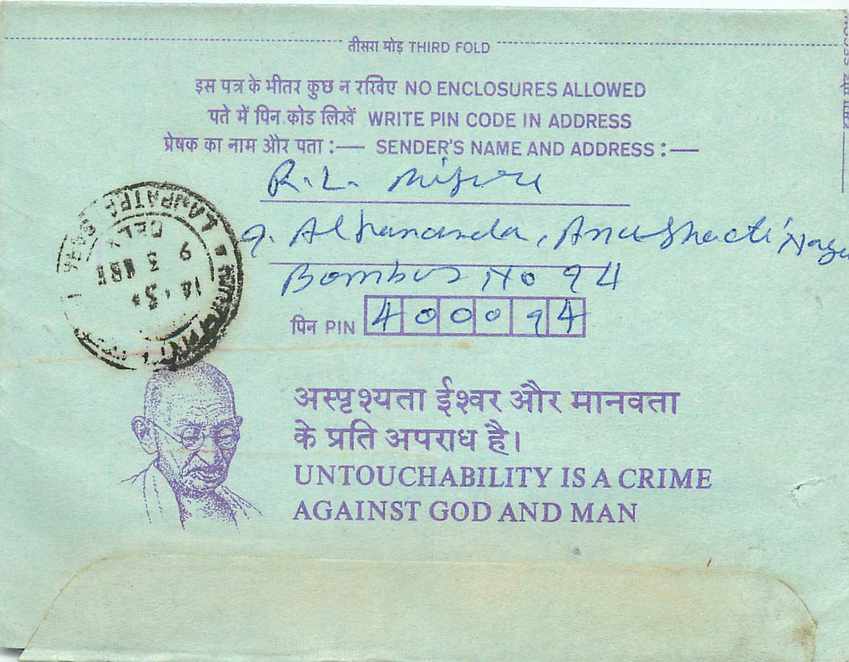 तीसरा मोड़ THIRD FOLD
इस पत्र के भीतर कुछ न रखिए NO ENCLOSURES ALLOWED
पते में पिन कोड लिखें WRITE PIN CODE IN ADDRESS
प्रेषक का नाम और पता :— SENDER'S NAME AND ADDRESS :—
R. L.
9. Alkananda, Anushakti Nagar
Bombay No 94
पिन PIN 400094
LAJPAT
DEL
9 3
14
अस्पृश्यता ईश्वर और मानवता
के प्रति अपराध है।
UNTOUCHABILITY IS A CRIME
AGAINST GOD AND MAN